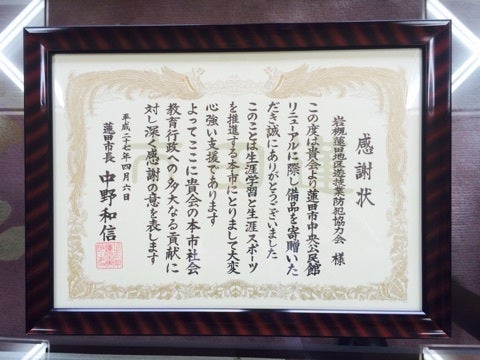 感謝状
岩槻蓮田地区遊技業防犯協力会 様
この度は貴会より蓮田市中央公民館
リニューアルに際し備品を寄贈いた
だき誠にありがとうございました
このことは生涯学習と生涯スポーツ
を推進する本市にとりまして大変
心強い支援であります
よってここに貴会の本市社会
教育行政への多大なる貢献に
対し深く感謝の意を表します
平成二十七年四月六日
蓮田市長 中野和信